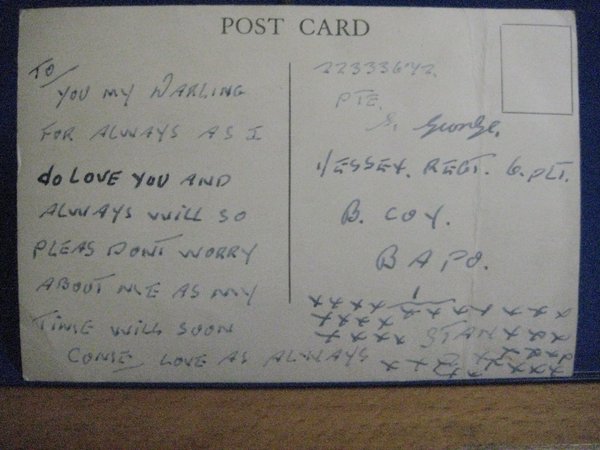 POST CARD
TO
YOU MY DARLING
FOR ALWAYS AS I
do LOVE YOU AND
ALWAYS WILL SO
PLEAS DONT WORRY
ABOUT ME AS MY
TIME WILL SOON
COME LOVE AS ALWAYS
22333642.
PTE.
S. George.
1/ESSEX. REGT. 6. PLT.
B. COY.
B A P O.
STAN